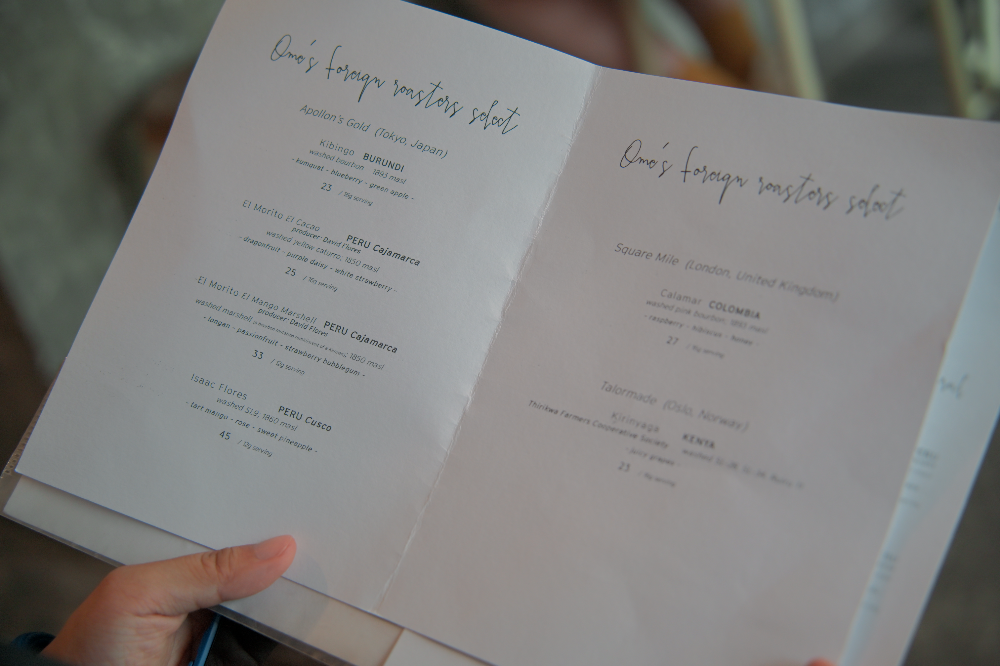 Omo's foreign roasters select
Apollon's Gold (Tokyo, Japan)
Kibingo BURUNDI
washed bourbon 1893 masl
- kumquat - blueberry - green apple -
23 / 18g serving
El Morito El Cacao PERU Cajamarca
producer: David Flores
washed yellow caturra, 1850 masl
- dragonfruit - purple daisy - white strawberry -
25 / 18g serving
El Morito El Mango Marshell PERU Cajamarca
producer: David Flores
washed marshell 1850 masl
- longan - passionfruit - strawberry bubblegum -
33 / 12g serving
Isaac Flores PERU Cusco
washed SL9, 1860 masl
- tart mango - rose - sweet pineapple -
45 / 12g serving
Omo's foreign roasters select
Square Mile (London, United Kingdom)
Calamar COLOMBIA
washed pink bourbon 1850 masl
- raspberry - hibiscus - honey -
27 / 18g serving
Talormade (Oslo, Norway)
Kirinyaga KENYA
Thirikwa Farmers Cooperative Society washed
- juicy grapes -
23 / 18g serving